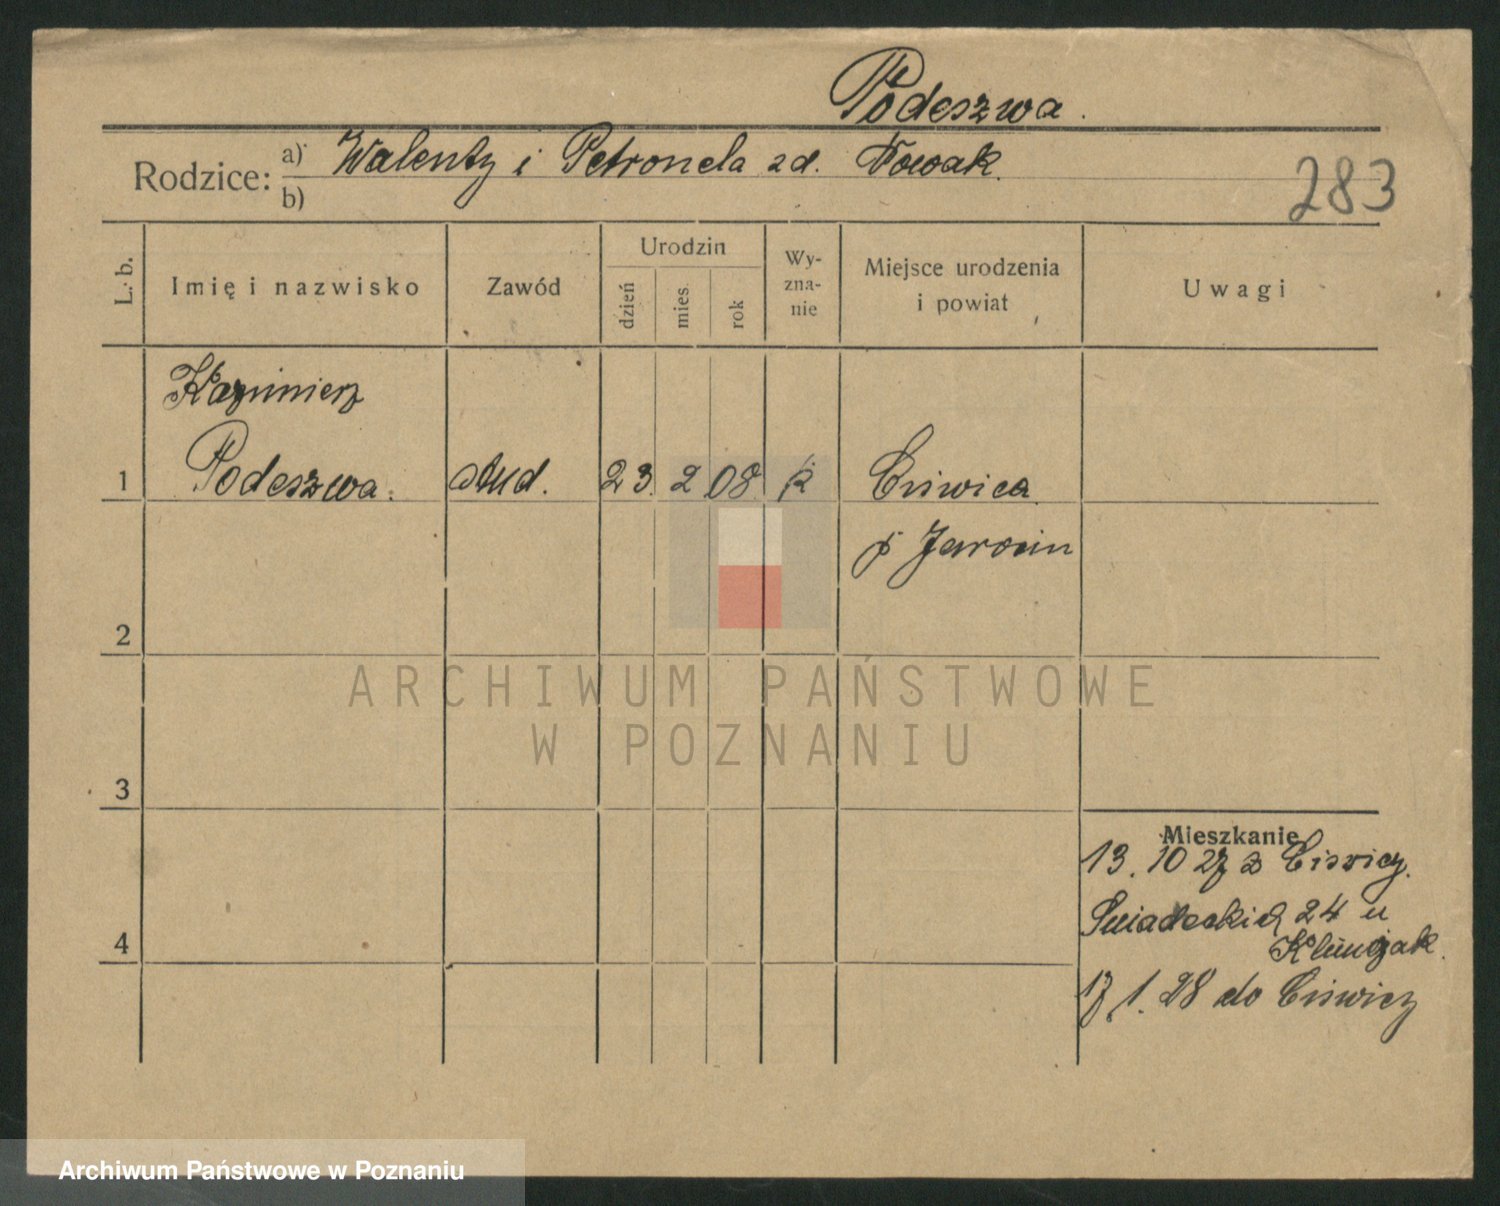 Podeszwa.
Rodzice: a) Walenty i Petronela zd. Nowak.
b)
283
L. b.
Imię i nazwisko
Zawód
Urodzin
dzień
mies.
rok
Wy-
zna-
nie
Miejsce urodzenia
i powiat
Uwagi
Kazimierz
1 Podeszwa. stud. 23. 2 08 k Ciświca
p Jarocin
2
3
4
Mieszkanie
13. 10 27 z Ciświcy.
Śniadeckich 24 u
17. 1. 28 do Ciświcy
ARCHIWUM PAŃSTWOWE
W POZNANIU
Archiwum Państwowe w Poznaniu